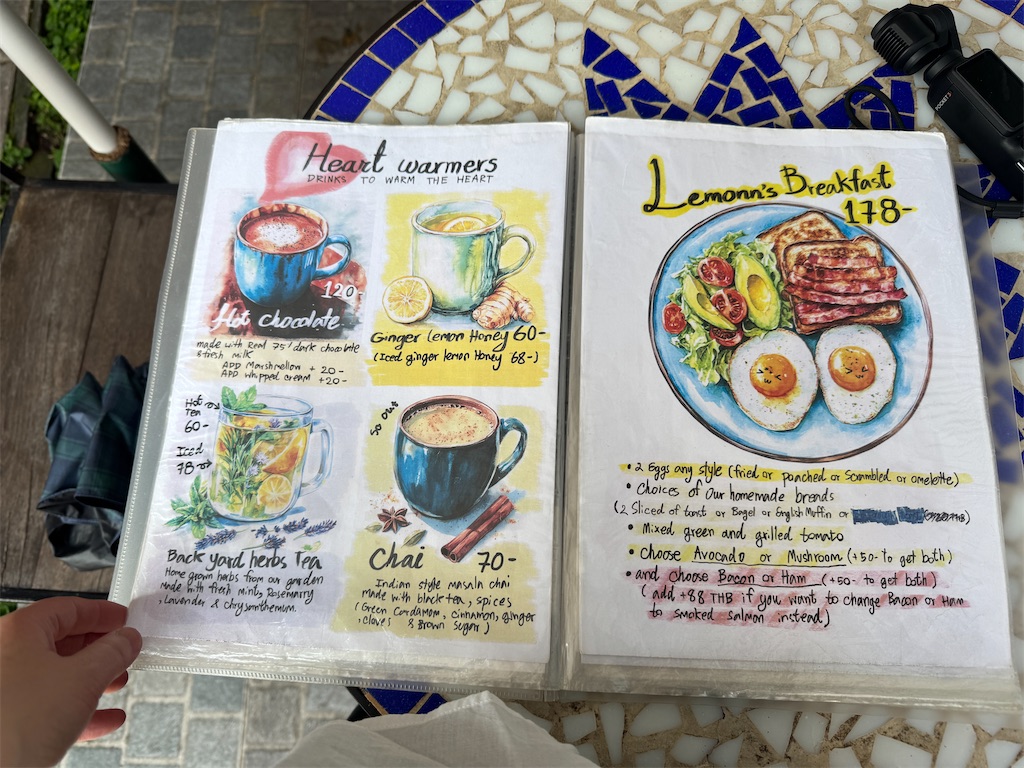 Heart warmers
DRINKS TO WARM THE HEART
120-
Hot chocolate
made with Real 75% dark chocolate
& fresh milk
ADD Marshmellow + 20-
ADD whipped cream +20-
Ginger lemon Honey 60-
(Iced ginger lemon Honey 68-)
Hot
Tea
60-
Iced
78-
Back yard herbs Tea
Home grown herbs from our garden
Made with fresh mint, Rosemarry
, Lavender & chrysanthemum.
Chai 70-
Indian style masala chai
made with black tea, spices
(Green Cardamom, cinnamon, ginger
, cloves & Brown Sugar)
Lemonn's Breakfast
178-
• 2 Eggs any style (fried or ponched or scrambled or omelette)
• Choices of our homemade breads
(2 Sliced of toast or Bagel or English Muffin or
• Mixed green and grilled tomato
• Choose Avocado or Mushroom (+50- to get both)
• and choose Bacon or Ham (+50- to get both)
( add +88 THB if you want to change Bacon or Ham
to smoked salmon instead)
POCKET 3